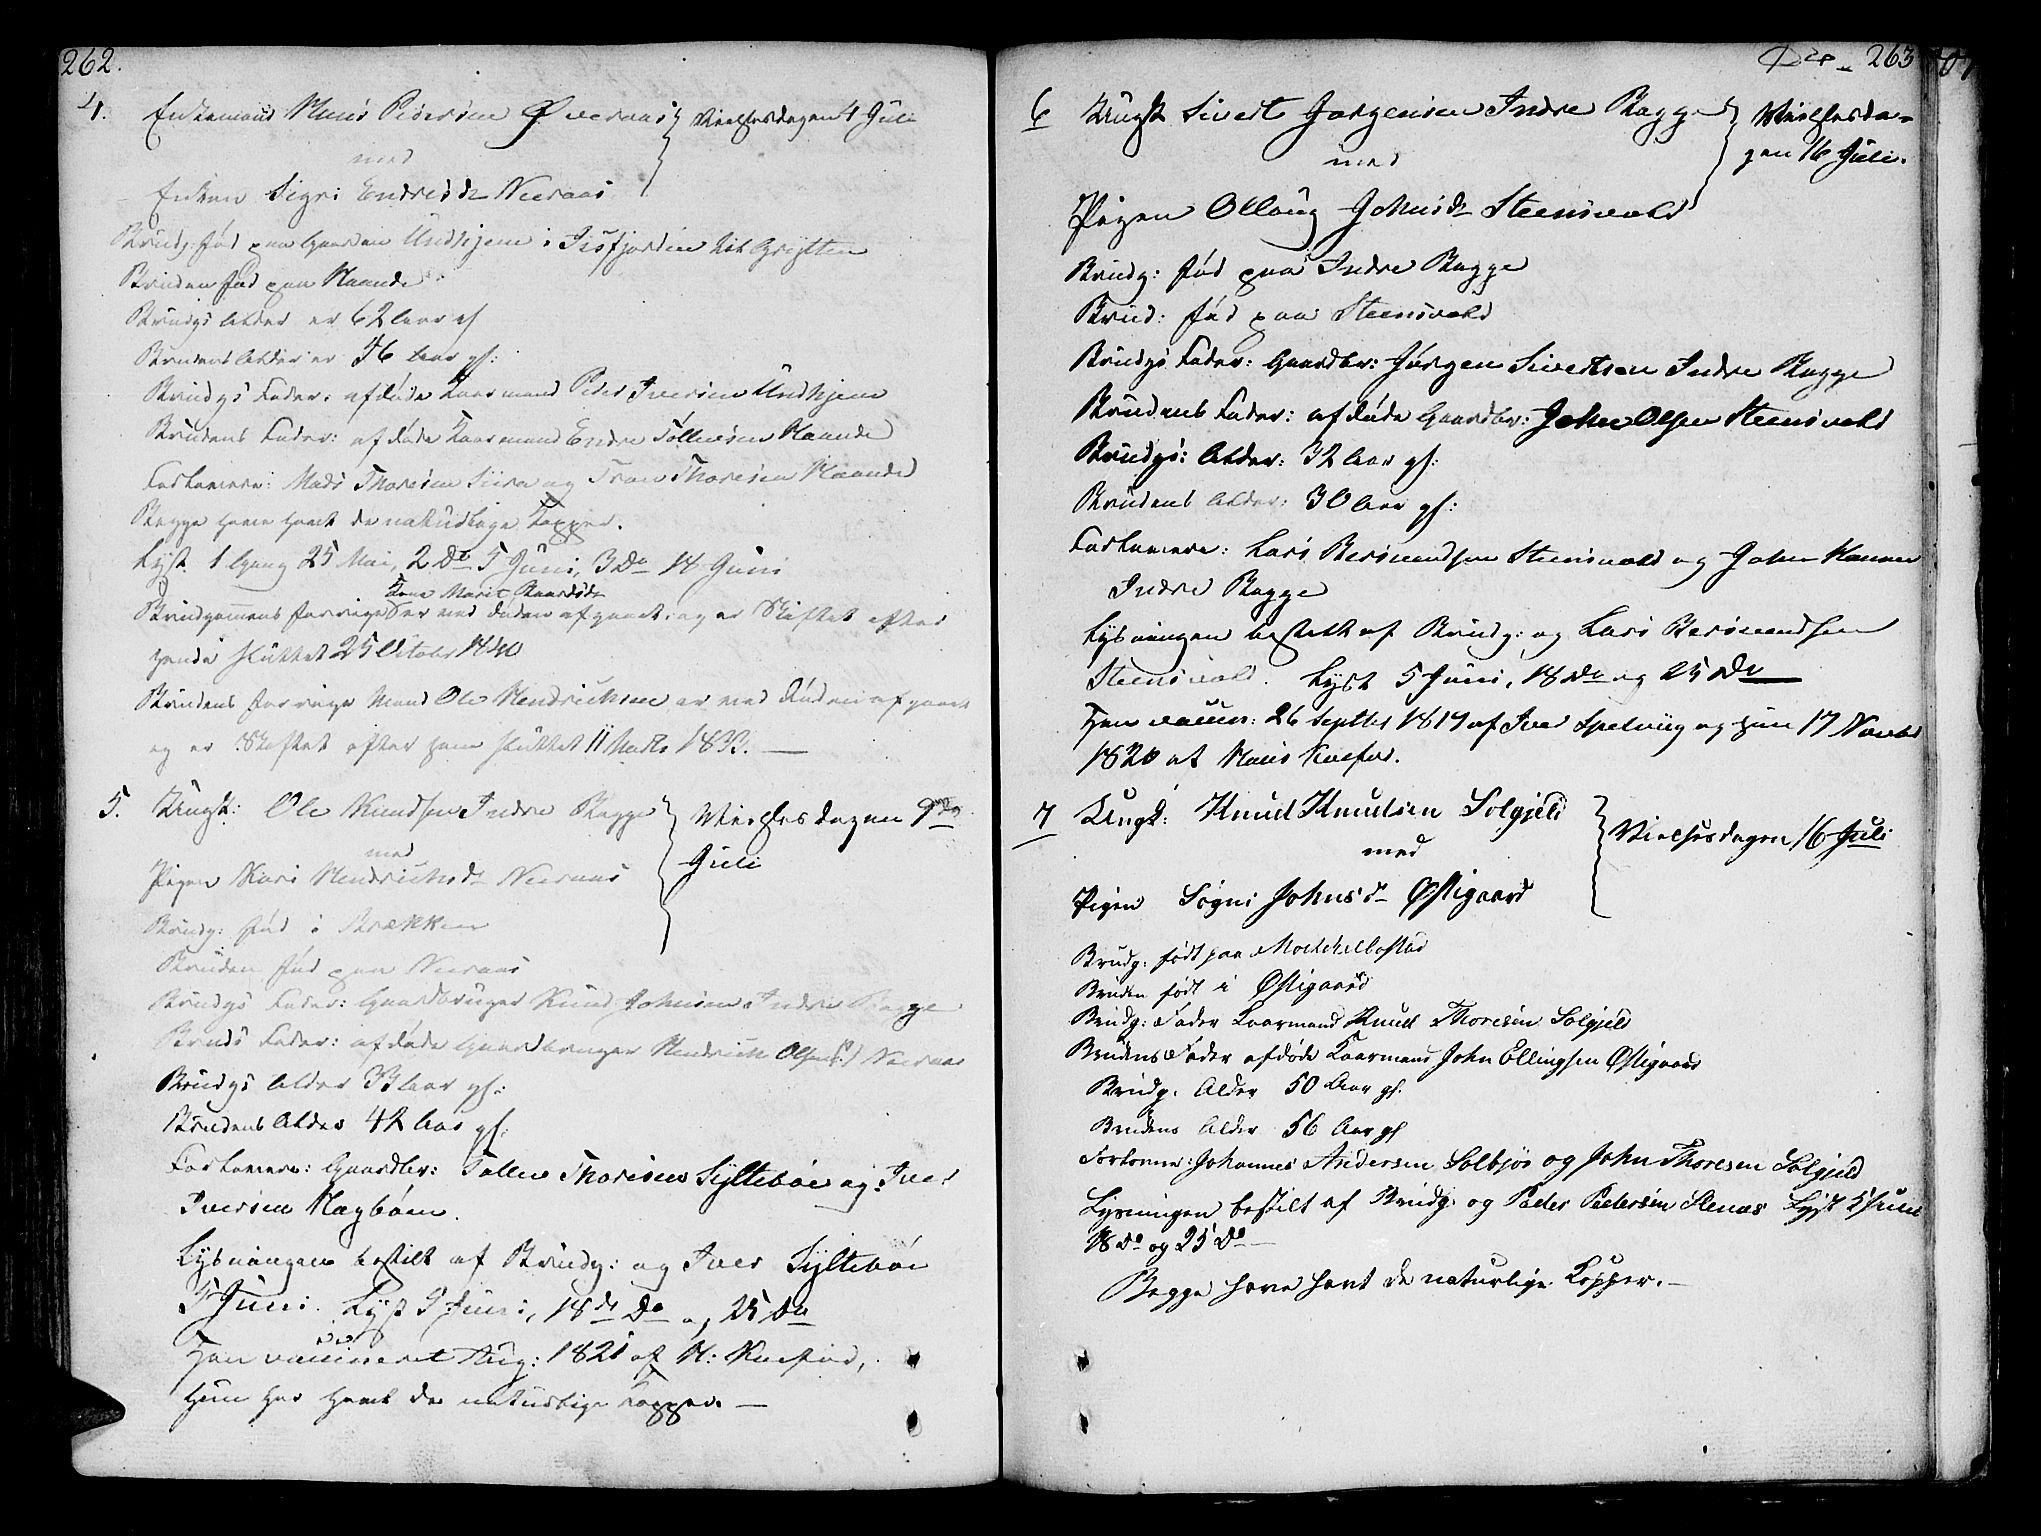 262.
4. Enkemand Hans Pedersen Øveraas Vielsesdagen 4 Juli
med
Enken Sigri Endresdr Neeraas
Brudg: fød paa Gaarden Undhjem i Iisfjorden til Grytten
Bruden fød paa Haande
Brudgs Alder er 62 Aar gl
Brudens Alder er 56 Aar gl:
Brudgs Fader: afdøde Kaarmand Peder Iversen Undhjem
Brudens Fader: afdøde Kaarmand Endre Tollevsen Haande
Forlovere: Mads Thoresen og Thoresen Haande
Begge have havt de naturlige Kopper.
Lyst 1 Gang 25 Mai, 2 Do 5 Juni, 3 Do 18 Juni
Kone Marit
Brudgommens forrige er ved Døden afgaaet og er Skiftet efter
hende sluttet 25 Octobr 1840
Brudens forrige Mand Ole Hendrichsen er ved Døden afgaaet
og er Skiftet efter ham sluttet 11 Marts 1833. —
5. Ungk: Ole Knudsen Indre Bagge Vielses dagen 9de
med Juli
Pigen Kari Hendrichsdr Neeraas
Brudg: fød i Brekken
Bruden fød paa Neeraas
Brudgs Fader: Gaardbruger Knud Johnsen Indre Bagge
Bruds Fader: afdøde Gaardbruger Hendrich Olsen Neeraas
Brudgs Alder 33 Aar gl:
Brudens Alder 42 Aar gl:
Forlovere: Gaardbr: Tollev Thoresen Syltebøe og Iver
Iversen Hagbøen.
Lysningen bestilt af Brudg: og Iver Syltebøe
5 Juni. Lyst 5 Juni, 18de Do og 25 Do
Han vaccineret Aug: 1821 af H: Kaefod,
hun har havt de naturlige Kopper. —
263
6 Ungk Sivert Jørgensen Indre Bagge Vielsesda-
med gen 16 Juli.
Pigen Ollaug Johnsdr Steensvold
Brudg: fød paa Indre Bagge
Brud: fød paa Steensvold
Brudgs Fader: Gaardbr: Jørgen Sivertsen Indre Bagge
Brudens Fader: afdøde Gaardbr: John Olsen Steensvold
Brudgs: Alder: 32 Aar gl:
Brudens Alder: 30 Aar gl:
Forlovere: Lars Steensvold og John Hansen
Indre Bagge
Lysningen bestilt af Brudg: og Lars
Steensvold. Lyst 5 Juni, 18 Do og 25 Do
Han vaccin: 26 Septbr 1817 af Iver Spelviig og hun 17 Novbr
1820 af Hans Kaefod.
7 Ungk: Knud Knudsen Solgjeld Vielsesdagen 16 Juli
med
Pigen Segni Johnsdr Østigaard
Brudg: født paa Moetchelbostad
Bruden født i Østigaard
Brudg: Fader Kaarmand Knud Thoresen Solgjeld
Brudens Fader afdøde Kaarmand John Ellingsen Østigaard
Brudg. Alder 50 Aar gl.
Brudens Alder 56 Aar gl
Forlovere: Johannes Andersen Solbjør og John Thoresen Solgjeld
Lysningen bestilt af Brudg. og Peder Pedersen Stenas Lyst 5 Juni
18 Do og 25 Do —
Begge have havt de naturlige Kopper. —